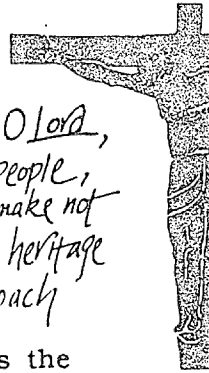 O Lord,
people,
make not
heritage
oach
s the